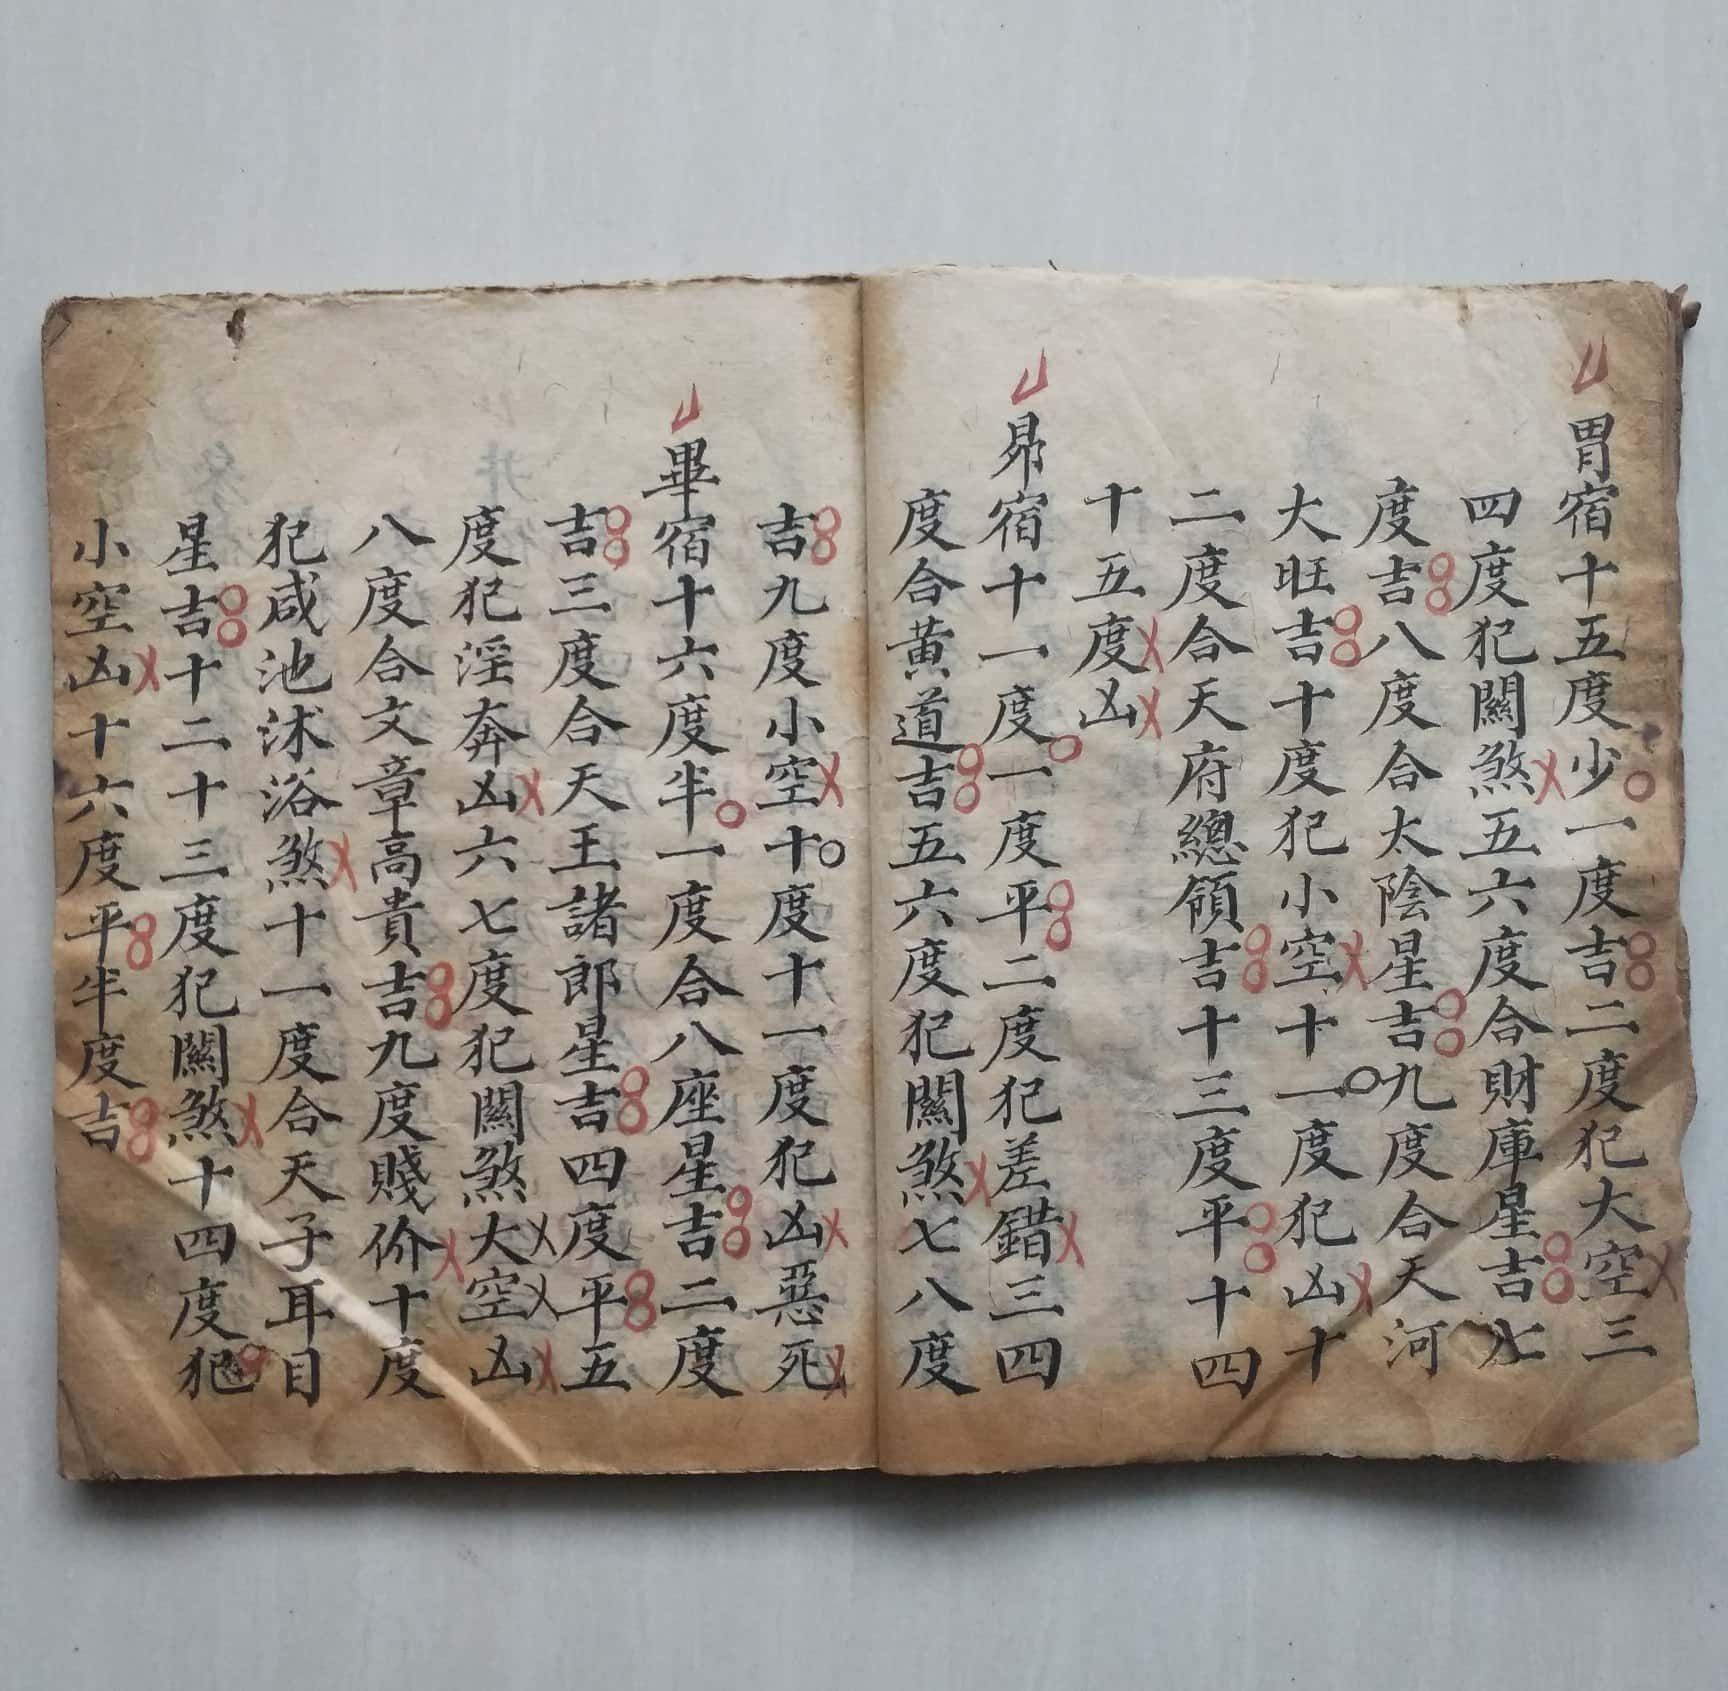 胃宿十五度少一度吉二度犯大空三
四度犯關煞五六度合財庫星吉七
度吉八度合太陰星吉九度合天河
大旺吉十度犯小空十一度犯凶十
二度合天府總領吉十三度平十四
十五度凶
昴宿十一度一度平二度犯差錯三四
度合黄道吉五六度犯關煞七八度
吉九度小空十度十一度犯凶惡死
畢宿十六度半一度合八座星吉二度
吉三度合天王諸郎星吉四度平五
度犯淫奔凶六七度犯關煞大空凶
八度合文章高貴吉九度賤价十度
犯咸池沭浴煞十一度合天子耳目
星吉十二十三度犯關煞十四度犯
小空凶十六度平半度吉